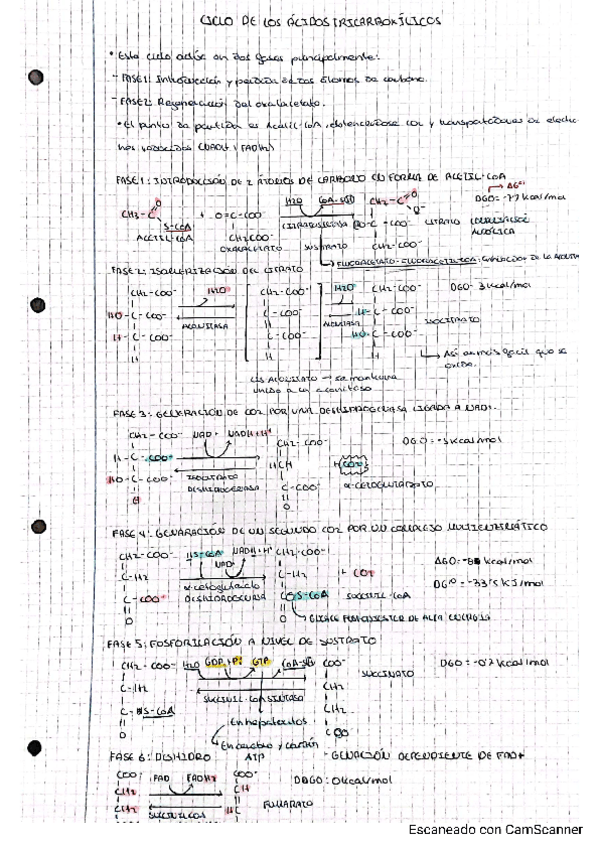 CICLO DE LOS ÁCIDOS TRICARBOXÍLICOS
• Este ciclo actúa en dos fases principalmente:
- FASE 1: Introducción y perdida de dos átomos de carbono.
- FASE 2: Regeneración del oxalacetato.
• El punto de partida es Acetil-CoA, obteniéndose CO2 y transportadores de electro
nes reducidos (NADH y FADH2)
FASE 1: INTRODUCCIÓN DE 2 ÁTOMOS DE CARBONO EN FORMA DE ACETIL-CoA
H2O CoA-SH CH2-C DGO= -7'7 kcal/mol
CH3-C + O=C-COO- HO-C-COO- CITRATO
S-CoA CH2COO- CH2-COO-
ACETIL-CoA OXALACETATO SUSTRATO
FLUOROACETATO-FLUOROACETIL-CoA: inhibición de la
FASE 2: ISOMERIZACIÓN DEL CITRATO
CH2-COO- H2O CH2-COO- H2O CH2-COO- DGO= 3 kcal/mol
HO-C-COO- C-COO- H-C-COO- ISOCITRATO
ACONITASA ACONITASA
H-C-COO- C-COO- HO-C-COO-
H H H
Así es más fácil que se
oxide.
CIS ACONITATO → se mantiene
unido a la aconitasa
FASE 3: GENERACIÓN DE CO2 POR UNA DESHIDROGENASA LIGADA A NAD+
CH2-COO- NAD+ NADH+H+ CH2-COO- DGO= -5 kcal/mol
H-C-COO- HCH CO2
HO-C-COO- ISOCITRATO C-COO- α-CETOGLUTARATO
H DESHIDROGENASA O
FASE 4: GENARACIÓN DE UN SEGUNDO CO2 POR UN COMPLEJO MULTIENZIMÁTICO
CH2-COO- HS-CoA NADH+H+ CH2-COO- ΔGO= -8 kcal/mol
C-H2 NAD+ C-H2 + CO2
C-COO- α-cetoglutarato C-S-CoA SUCCINIL-CoA DG'O= -33'5 kJ/mol
O DESHIDROGENASA O
FASE 5: FOSFORILACIÓN A NIVEL DE SUSTRATO
CH2-COO- H2O GDP+Pi GTP CoA-SH COO- SUCCINATO DGO= -0'7 kcal/mol
C-H2 CH2
C-S-CoA SUCCINIL-CoA SINTETASA CH2
O En hepatocitos COO-
En cerebro y corazón
ATP
FASE 6: DESHIDRO - GENACIÓN DEPENDIENTE DE FAD+
COO- FAD FADH2 COO- DGO: 0 kcal/mol
CH2 CH
CH2 HC FUMARATO
Escaneado con CamScanner